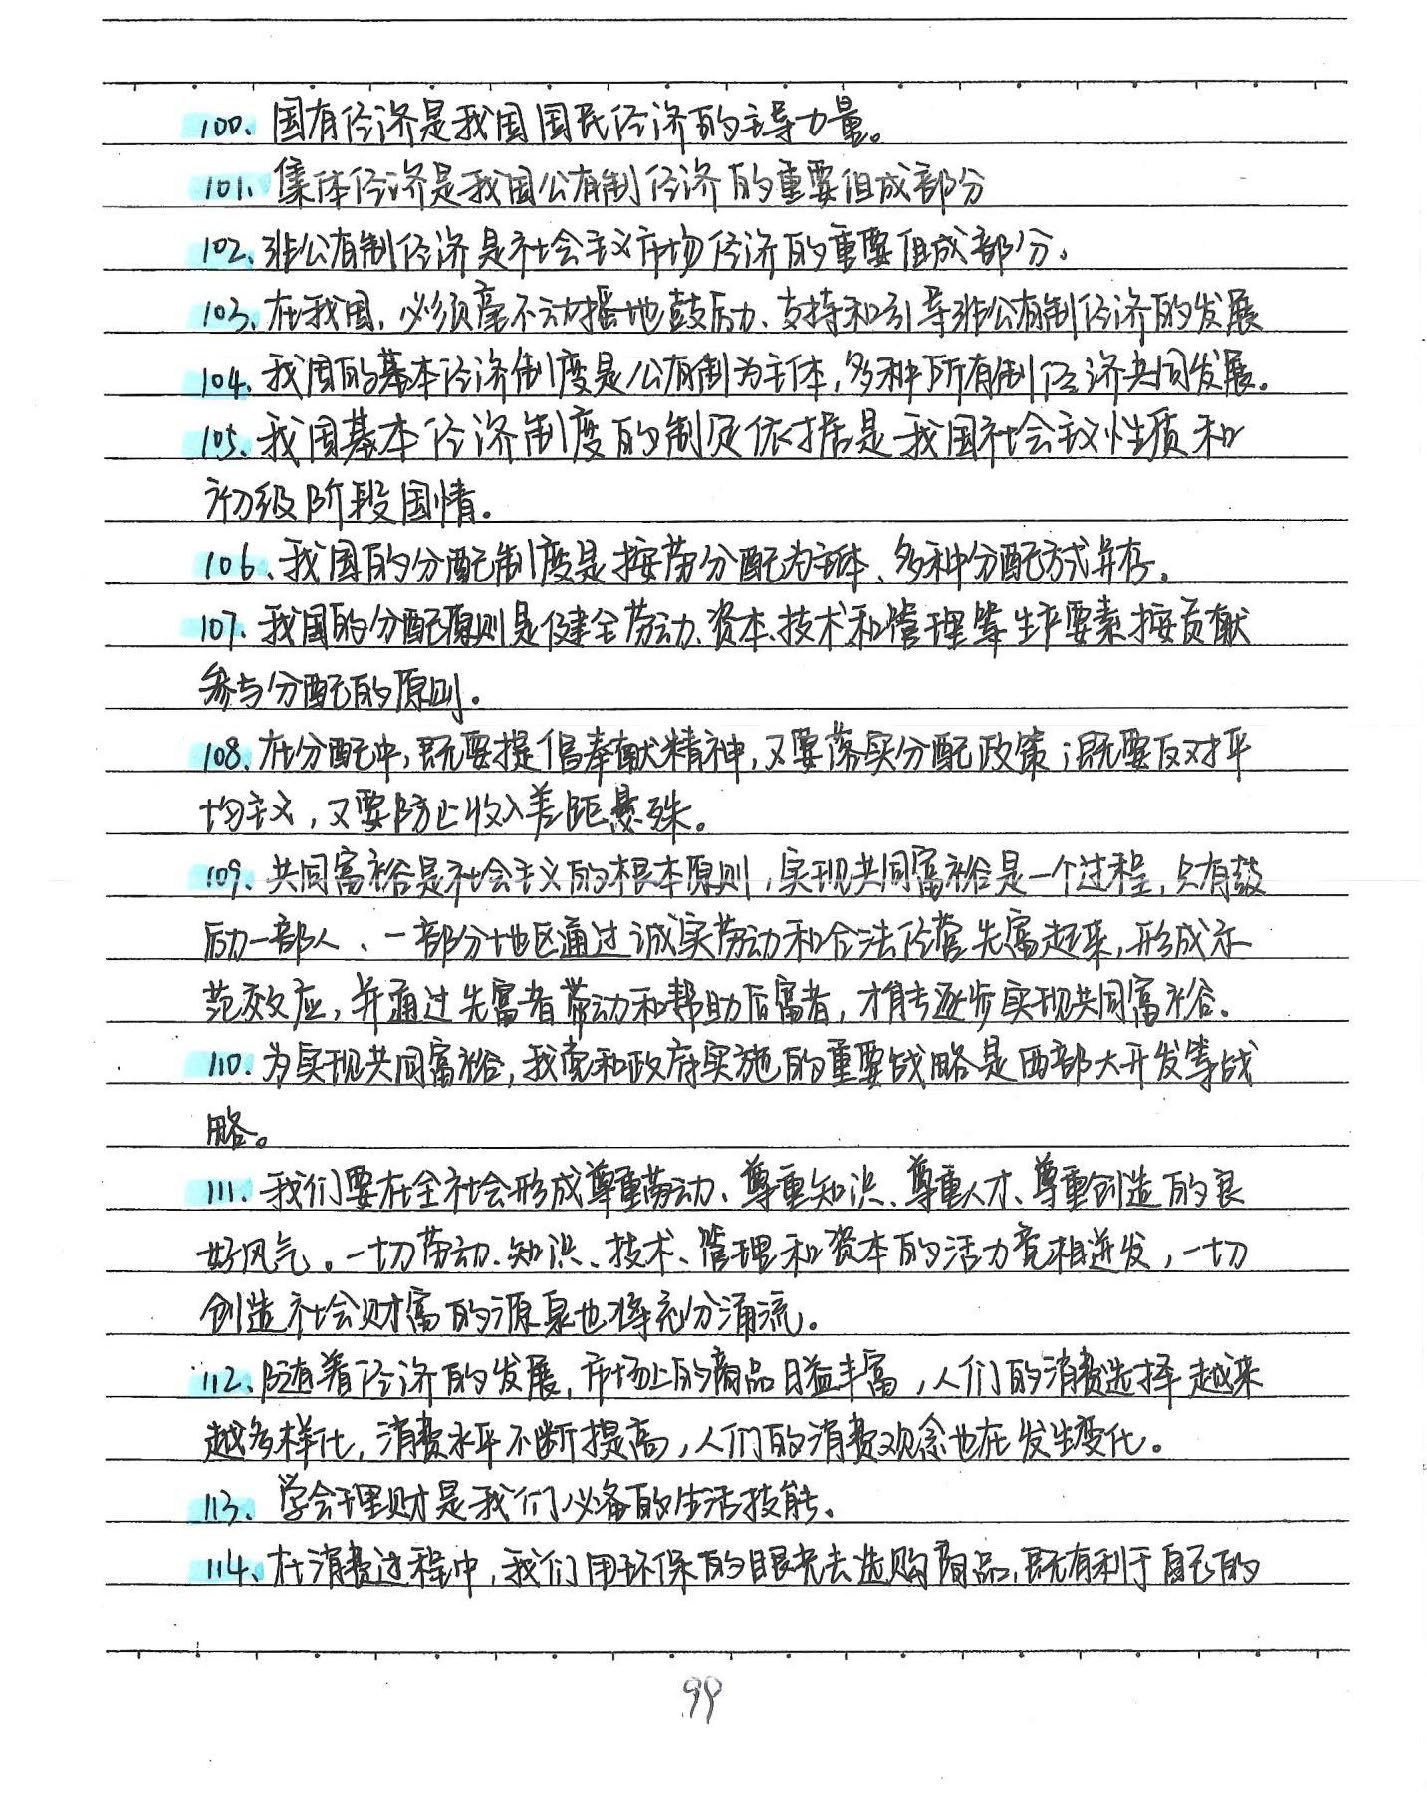 100、国有经济是我国国民经济的主导力量。
101、集体经济是我国公有制经济的重要组成部分
102、非公有制经济是社会主义市场经济的重要组成部分。
103、在我国，必须毫不动摇地鼓励、支持和引导非公有制经济的发展
104、我国的基本经济制度是公有制为主体，多种所有制经济共同发展。
105、我国基本经济制度的制定依据是我国社会主义性质和
初级阶段国情。
106、我国的分配制度是按劳分配为主体、多种分配方式并存。
107、我国的分配原则是健全劳动、资本、技术和管理等生产要素按贡献
参与分配的原则。
108、在分配中，既要提倡奉献精神，又要落实分配政策；既要反对平
均主义，又要防止收入差距悬殊。
109、共同富裕是社会主义的根本原则，实现共同富裕是一个过程，只有鼓
励一部人、一部分地区通过诚实劳动和合法经营先富起来，形成示
范效应，并通过先富者带动和帮助后富者，才能逐步实现共同富裕。
110、为实现共同富裕，我党和政府实施的重要战略是西部大开发等战
略。
111、我们要在全社会形成尊重劳动、尊重知识、尊重人才、尊重创造的良
好风气。一切劳动、知识、技术、管理和资本的活力竞相迸发，一切
创造社会财富的源泉也将充分涌流。
112、随着经济的发展，市场上的商品日益丰富，人们的消费选择越来
越多样化，消费水平不断提高，人们的消费观念也在发生变化。
113、学会理财是我们必备的生活技能。
114、在消费过程中，我们用环保的眼光去选购商品，既有利于自己的
99